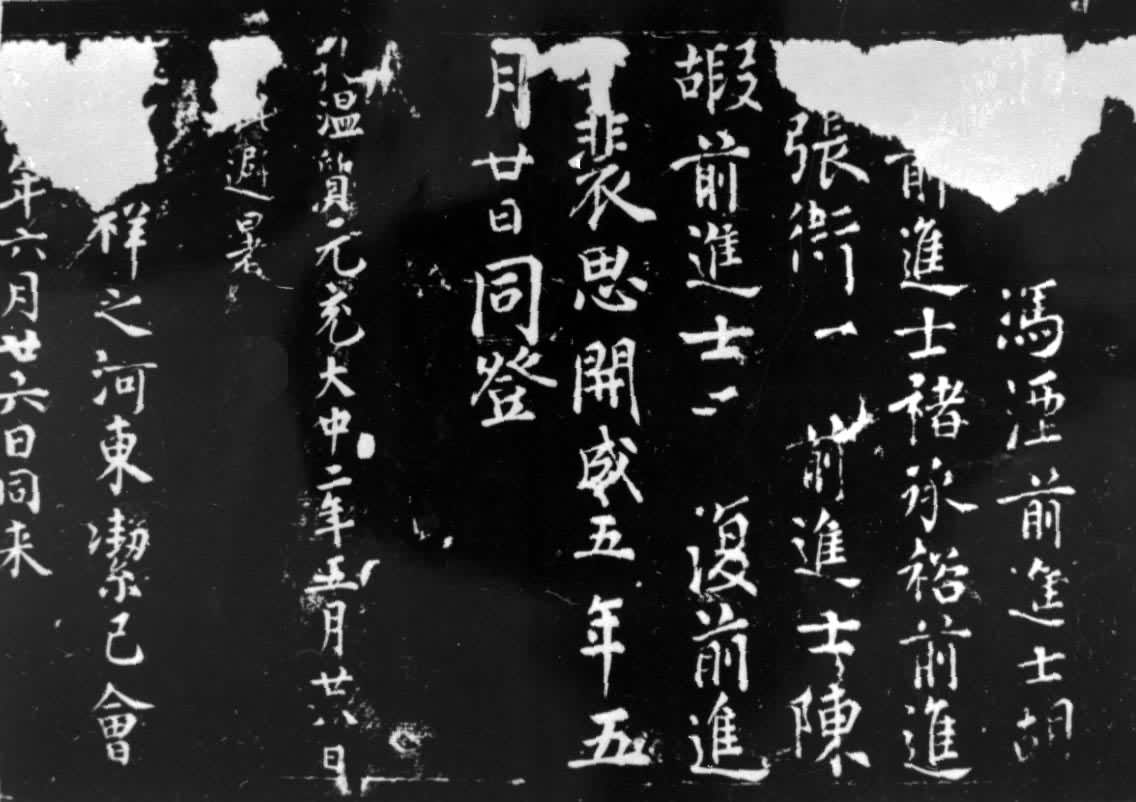 馮湮前進士胡
前進士褚承裕前進
張衛前進士陳
嘏前進士復前進
士裴思開成五年五
月廿日同登
溫質元充大中二年五月廿六日
避暑
祥之河東潔己會
年六月廿六日同来